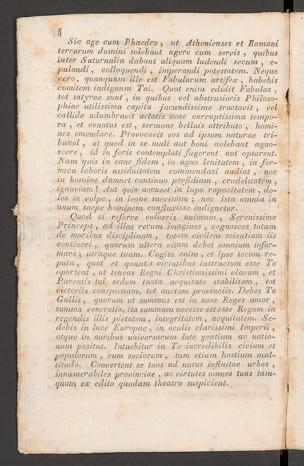 4
Sic age cum Phaedro, ut Athenienses et Romani
terrarum domini solebant agere cum servis, quibus
inter Saturnalia dabant aliquam ludendi secum, e-
pulandi, colloquendi, imperandi potestatem. Neque
vero, quanquam ille est Fabularum artifex, habebis
comitem indignum Tui. Quot enim edidit Fabulas,
tot satyrae sunt, in quibus vel abstrusioris Philoso-
phiae utilissima capita jucundissime tractavit, vel
callide adumbravit aetatis suae corruptissima tempo-
ra, et conatus est, sermone belluis attributo, homi-
nes emendare. Provocavit eos ad ipsum naturae tri-
bunal, ut quod in se mali aut boni nolebant agno-
scere, id in feris contemplati fugerent aut optarent.
Nam quis in cane fidem, in agno lenitatem, in for-
mica laboris assiduitatem commendari audiat, nec
in homine damnet continuo perfidiam, crudelitatem,
ignaviam? Aut quis accuset in lupo rapacitatem, do-
los in vulpe, in leone saevitiam; nec ista omnia in
unum saepe hominem confluxisse indignetur.
Quod si referre volueris animum, Serenissime
Princeps, ad illas rerum imagines, cognosces totam
de moribus disciplinam, totam civilem scientiam iis
contineri, quarum altera vitam debet omnium infor-
mare; utraque tuam. Cogita enim, et ipse tecum re-
puta, quot et quantis virtutibus instructum esse Te
oporteat, ut teneas Regni Christianissimi clavum, et
Parentis tui sedem tanta aequitate stabilitam, tot
victoriis conspicuam, tot auctam provinciis. Debes Te
Gallis, quorum ut summus est in suos Reges amor,
summa veneratio, ita summam necesse est esse Regum in
regendis illis pietatem, integritatem, aequitatem. Se-
debis in luce Europae, in oculis clarissimi Imperii,
atque in auribus universarum late gentium ac natio-
num positus. Intuebitur in Te incredibilis civium et
populorum, cum sociorum, tum etiam hostium mul-
titudo. Convertent se tuos ad nutus infinitae urbes,
innumerabiles provinciae, ac virtutes omnes tuas tam-
quam ex edito quodam theatro suspicient.